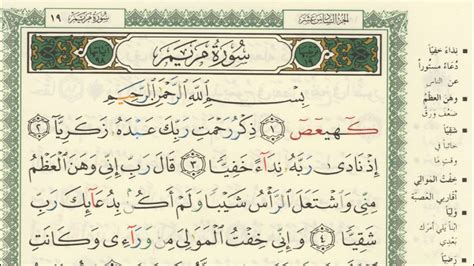 سُورَةُ مَرْيَمَ ١٩
الجزء السادس عشر
سُورَةُ مَرْيَمَ
بِسْمِ ٱللَّهِ ٱلرَّحْمَٰنِ ٱلرَّحِيمِ
كٓهيعٓصٓ ١ ذِكْرُ رَحْمَتِ رَبِّكَ عَبْدَهُۥ زَكَرِيَّآ ٢
إِذْ نَادَىٰ رَبَّهُۥ نِدَآءً خَفِيًّا ٣ قَالَ رَبِّ إِنِّى وَهَنَ ٱلْعَظْمُ
مِنِّى وَٱشْتَعَلَ ٱلرَّأْسُ شَيْبًا وَلَمْ أَكُنۢ بِدُعَآئِكَ رَبِّ
شَقِيًّا ٤ وَإِنِّى خِفْتُ ٱلْمَوَٰلِىَ مِن وَرَآءِى وَكَانَتِ
نِدَاءً خَفِيّاً
دُعَاءً مَسْتُوراً
عن الناس
وَهَنَ العَظْمُ
ضَعُفَ وَرَقَّ
شَقِيّاً
خائباً في
وقتٍ ما
خِفْتُ المَوَالِيَ
أقاربي العَصَبة